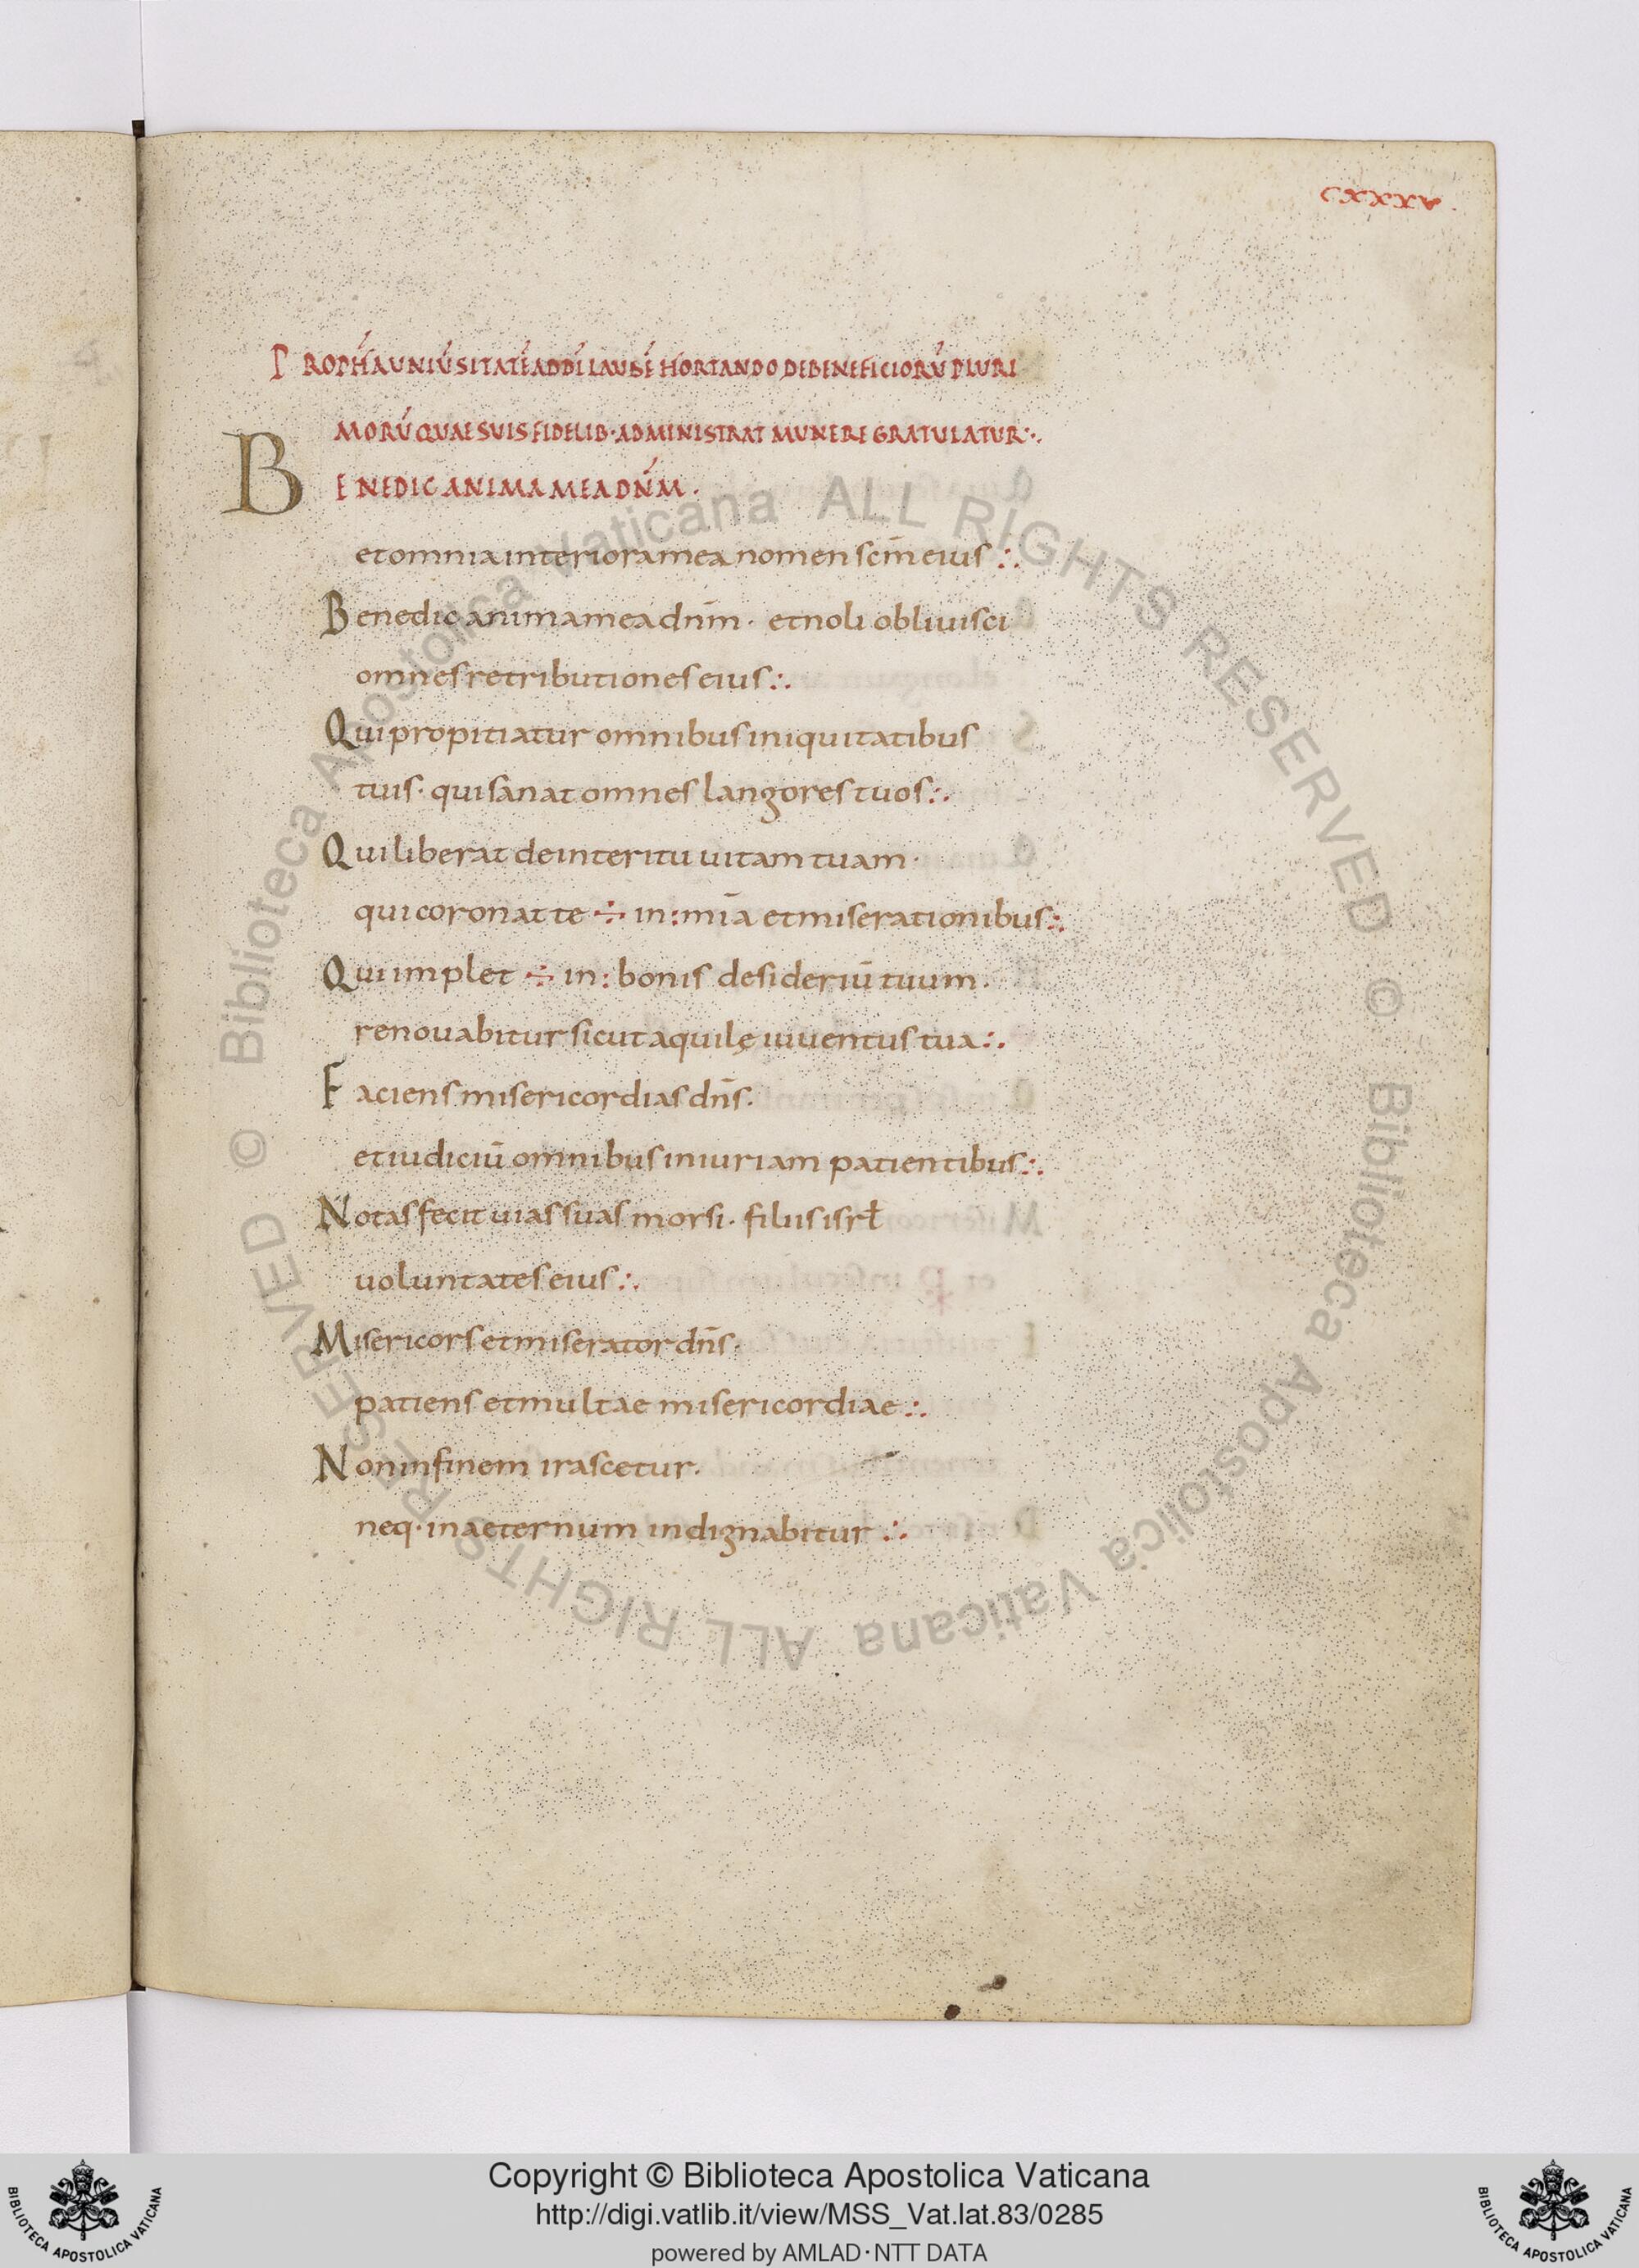 CXXXV.
PROPH́A UNIÚSITATÉ AD DÍ LAUDÉ HORTANDO DE BENEFICIORÚ PLURI
MORÚ QUAE SUIS FIDELIB· ADMINISTRAT MUNERE GRATULATUR:·.
BENEDIC ANIMA MEA DN̄M·
et omnia interiora mea nomen scm̄ eius:·.
Benedic anima mea dnm̄· et noli obliuisci
omnes retributiones eius:·.
Qui propitiatur omnibus iniquitatibus
tuis· qui sanat omnes langores tuos:·.
Qui liberat de interitu uitam tuam·
qui coronat te ÷ in: mīa et miserationibus:·.
Qui implet ÷ in: bonis desideriū tuum.
renouabitur sicut aquilę iuuentus tua:·.
Faciens misericordias dn̄s.
et iudiciū omnibus iniuriam patientibus:·.
Notas fecit uias suas morsi· filiis isrł
uoluntates eius:·.
Misericors et miserator dn̄s·
patiens et multae misericordiae:·.
Non in finem irascetur.
neq· in aeternum indignabitur:·.
© Biblioteca Apostolica Vaticana ALL RIGHTS RESERVED
© Biblioteca Apostolica Vaticana ALL RIGHTS RESERVED
Copyright © Biblioteca Apostolica Vaticana
http://digi.vatlib.it/view/MSS_Vat.lat.83/0285
powered by AMLAD·NTT DATA
BIBLIOTECA APOSTOLICA VATICANA
BIBLIOTECA APOSTOLICA VATICANA